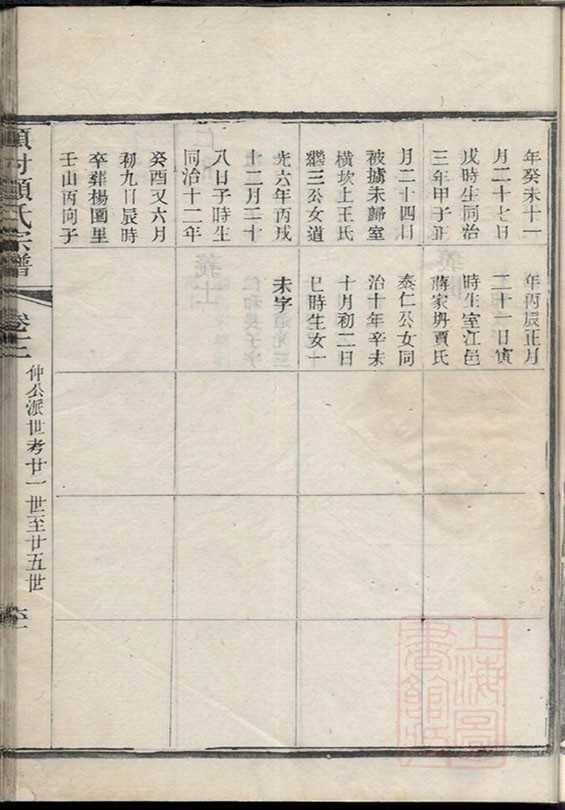 年癸未十一
月二十七日
戌時生同治
三年甲子正
月二十四日
被擄未歸室
橫坎上王氏
繼三公女道
光六年丙戌
十二月二十
八日子時生
同治十二年
癸酉又六月
初九日辰時
卒葬楊園里
壬山丙向子
年丙辰正月
二十一日寅
時生室江邑
蔣家塲賈氏
泰仁公女同
治十年辛未
十月初二日
巳時生女一
未字
顧氏宗譜
卷二
仲公派世考廿一世至廿五世
上海圖書館藏